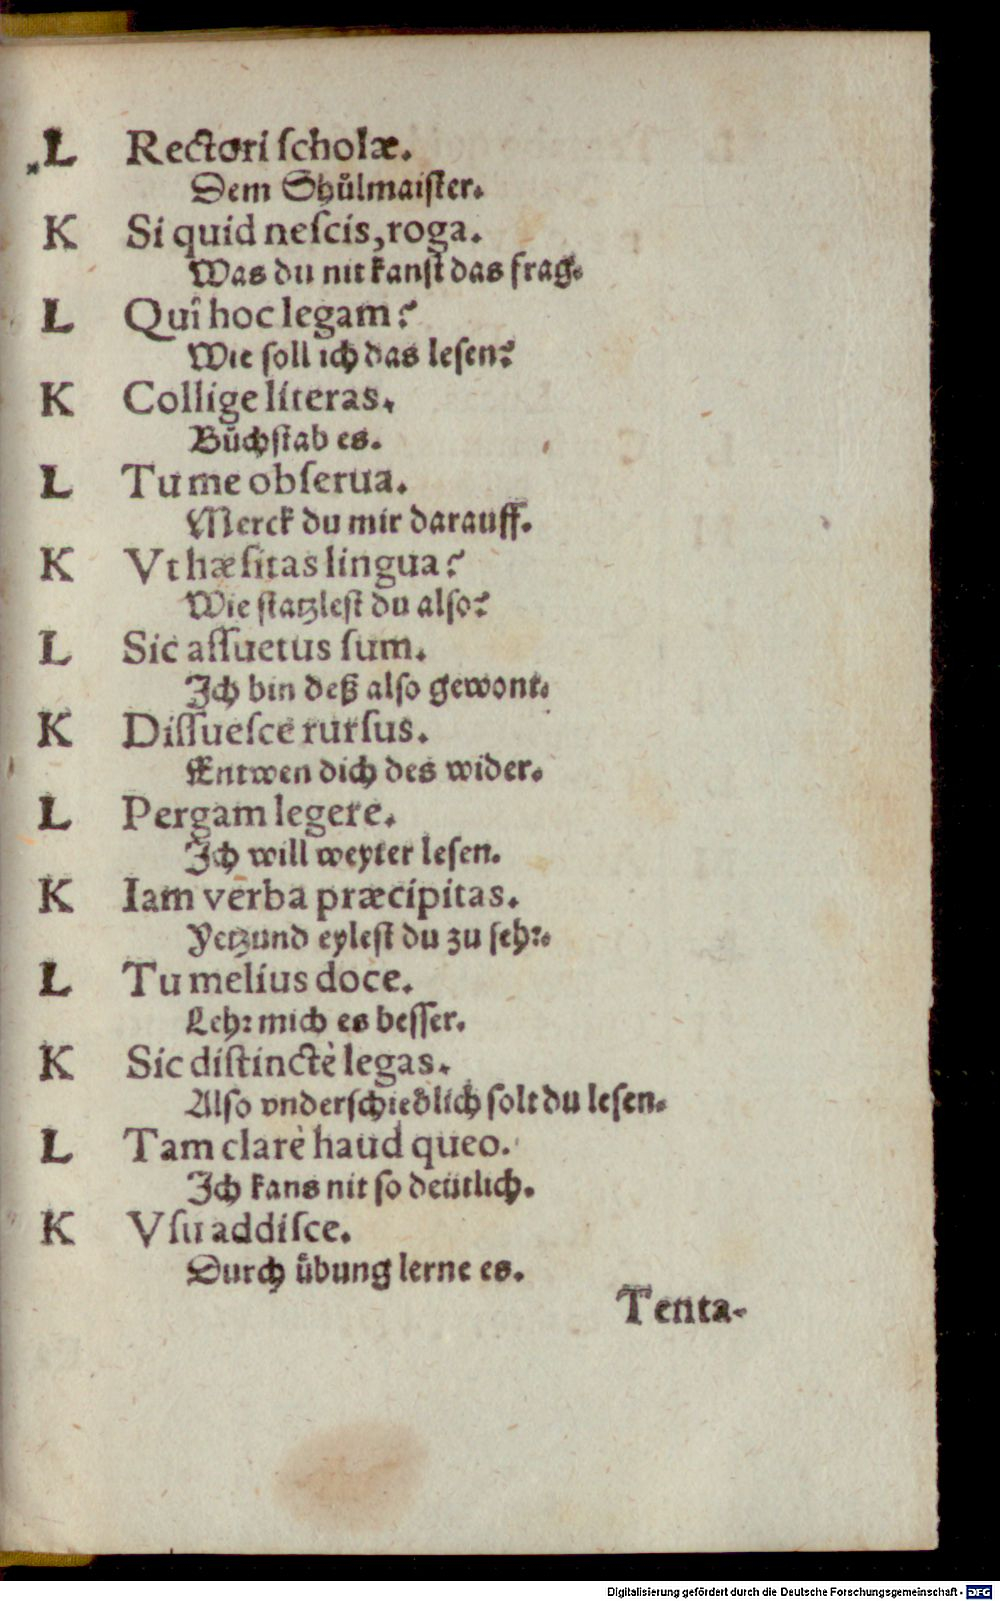 L Rectori ſcholæ.
Dem Shůlmaiſter.
K Si quid neſcis, roga.
Was du nit kanſt das frag.
L Quî hoc legam?
Wie ſoll ich das leſen?
K Collige literas.
Bůchſtab es.
L Tu me obſerua.
Merck du mir darauff.
K Vt hæſitas lingua?
Wie ſtatzleſt du alſo?
L Sic aſſuetus ſum.
Ich bin deß alſo gewont.
K Diſſueſce rurſus.
Entwen dich des wider.
L Pergam legere.
Ich will weyter leſen.
K Iam verba præcipitas.
Yetzund eyleſt du zu ſehr.
L Tu melius doce.
Lehr mich es beſſer.
K Sic diſtinctè legas.
Alſo vnderſchiedlich ſolt du leſen.
L Tam clarè haud queo.
Ich kans nit ſo deütlich.
K Vſu addiſce.
Durch übung lerne es.
Tenta-
Digitalisierung gefördert durch die Deutsche Forschungsgemeinschaft - DFG